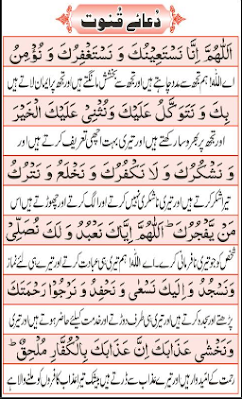 دعائے قنوت
اَللّٰهُمَّ اِنَّا نَسْتَعِيْنُكَ وَ نَسْتَغْفِرُكَ وَ نُؤْمِنُ
اے اللہ! ہم تجھ سے مدد چاہتے ہیں اور تجھ سے بخشش مانگتے ہیں اور تجھ پر ایمان لاتے ہیں
بِكَ وَ نَتَوَكَّلُ عَلَيْكَ وَنُثْنِيْ عَلَيْكَ الْخَيْرَ
اور تجھ پر بھروسہ رکھتے ہیں اور تیری بہت اچھی تعریف کرتے ہیں اور
وَ نَشْكُرُكَ وَ لَا نَكْفُرُكَ وَ نَخْلَعُ وَ نَتْرُكُ
تیرا شکر کرتے ہیں اور تیری ناشکری نہیں کرتے اور الگ کرتے اور چھوڑتے ہیں اس
مَنْ يَّفْجُرُكَ ط اَللّٰهُمَّ اِيَّاكَ نَعْبُدُ وَ لَكَ نُصَلِّيْ
شخص کو جو تیری نافرمانی کرے۔ اے اللہ! ہم تیری ہی عبادت کرتے اور تیرے ہی لئے نماز
وَنَسْجُدُ وَ اِلَيْكَ نَسْعٰى وَ نَحْفِدُ وَ نَرْجُوْا رَحْمَتَكَ
پڑھتے اور سجدہ کرتے ہیں اور تیری ہی طرف دوڑتے اور خدمت کیلئے حاضر ہوتے ہیں اور تیری
وَ نَخْشٰى عَذَابَكَ اِنَّ عَذَابَكَ بِالْكُفَّارِ مُلْحِقٌ ط
رحمت کے امیدوار ہیں اور تیرے عذاب سے ڈرتے ہیں بیشک تیرا عذاب کافروں کو ملنے والا ہے